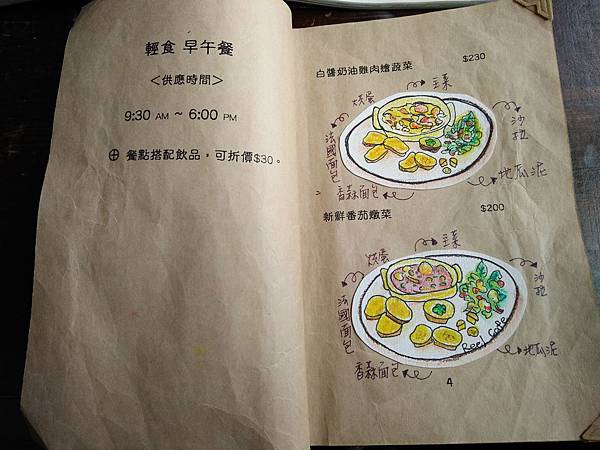 輕食 早午餐
＜供應時間＞
9:30 AM ~ 6:00 PM
⊕ 餐點搭配飲品，可折價$30。
白醬奶油雞肉燴蔬菜 $230
主菜
烘蛋
沙拉
法國面包
地瓜泥
香蒜面包
新鮮番茄燉菜 $200
主菜
烘蛋
沙拉
法國面包
Reel Cafe
地瓜泥
香蒜面包
4